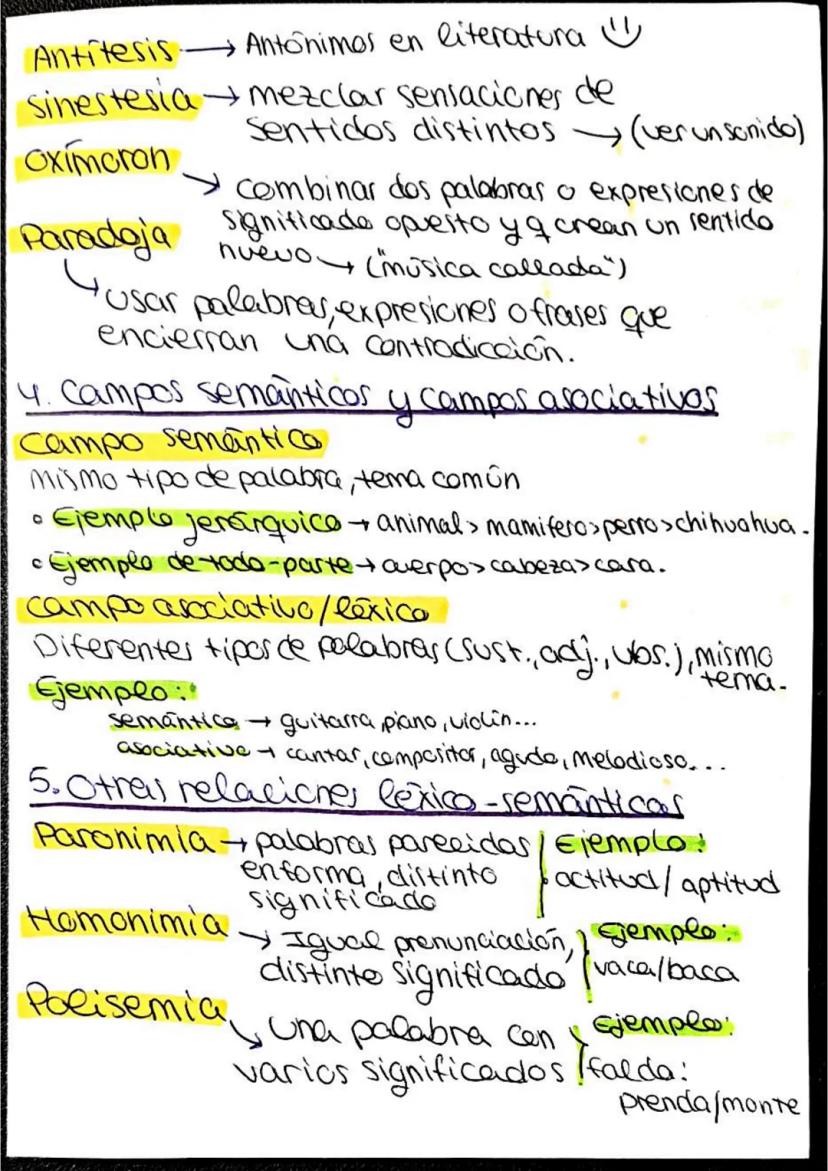 Antítesis → Antónimos en literatura
Sinestesia → mezclar sensaciones de
sentidos distintos → (ver un sonido)
Oxímoron
→ combinar dos palabras o expresiones de
significado opuesto y q crean un sentido
nuevo → ("música callada")
Paradoja
→ usar palabras, expresiones o frases que
encierran una contradicción.
4. Campos semánticos y campos asociativos
campo semántico
mismo tipo de palabra, tema común
• Ejemplo jerárquico → animal > mamifero > perro > chihuahua.
• Ejemplo de todo-parte → cuerpo > cabeza > cara.
campo asociativo/léxico
Diferentes tipos de palabras (sust., adj., vbs.), mismo
tema.
Ejemplo:
semántico → guitarra, piano, violín...
asociativo → cantar, compositor, agudo, melodioso...
5. Otras relaciones léxico-semánticas
Paronimia → palabras parecidas
en forma, distinto
significado
Ejemplo:
actitud / aptitud
Homonimia → Igual pronunciación,
distinto significado
Ejemplo:
vaca/baca
Polisemia
→ Una palabra con
varios significados
Ejemplo:
falda:
prenda/monte